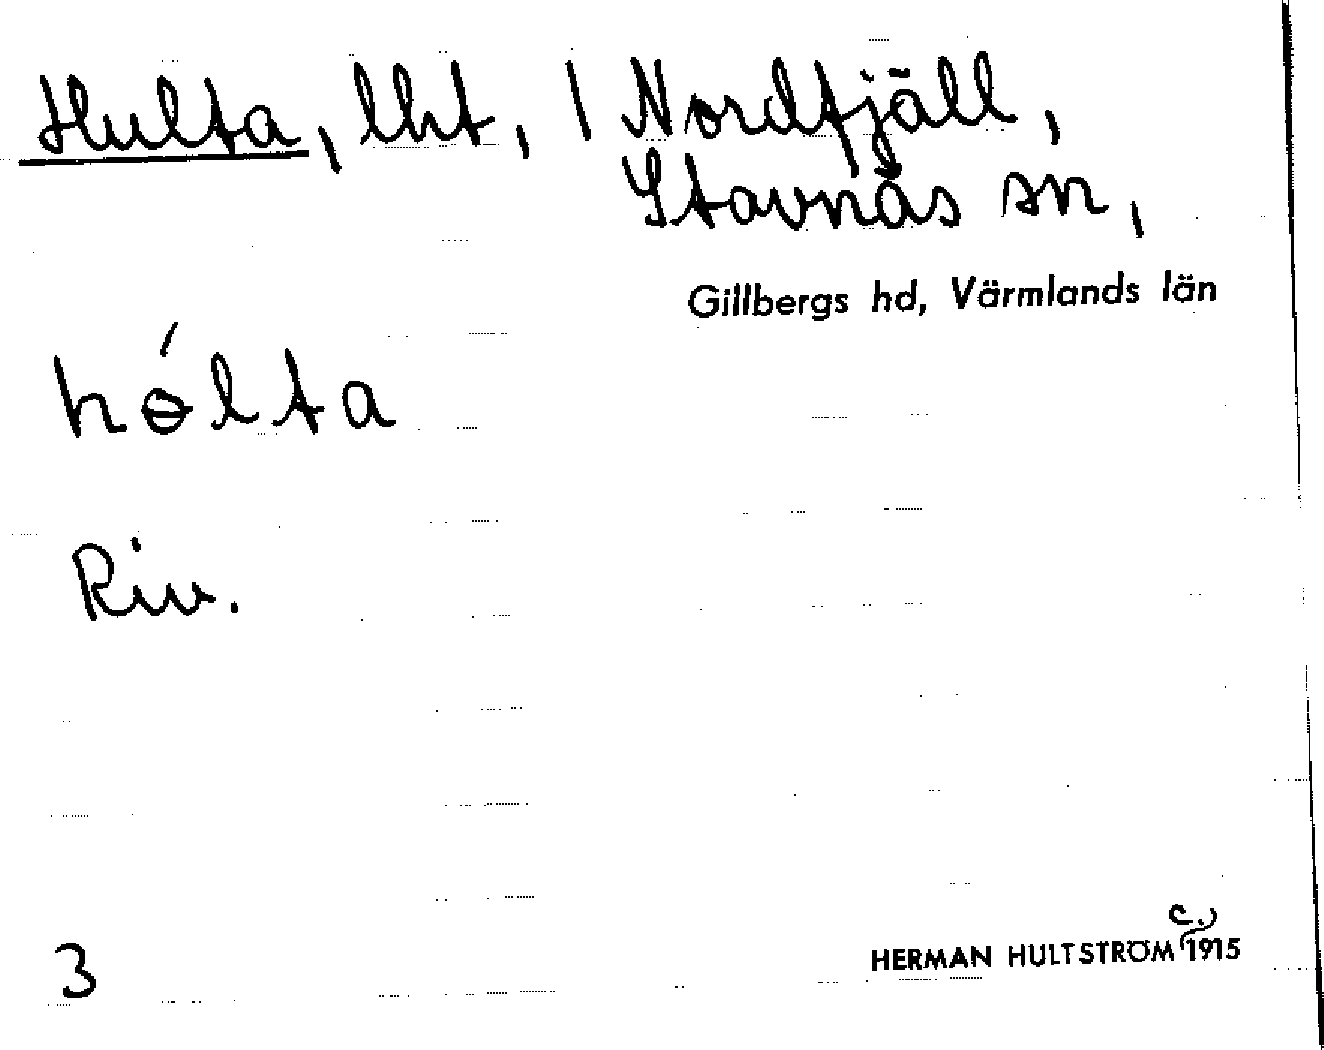 Hulta, lht, 1 Nordfjäll,
Stavnäs sn,
Gillbergs hd, Värmlands län
hɵ́lta
Riv.
3
c.
HERMAN HULTSTRÖM 1915